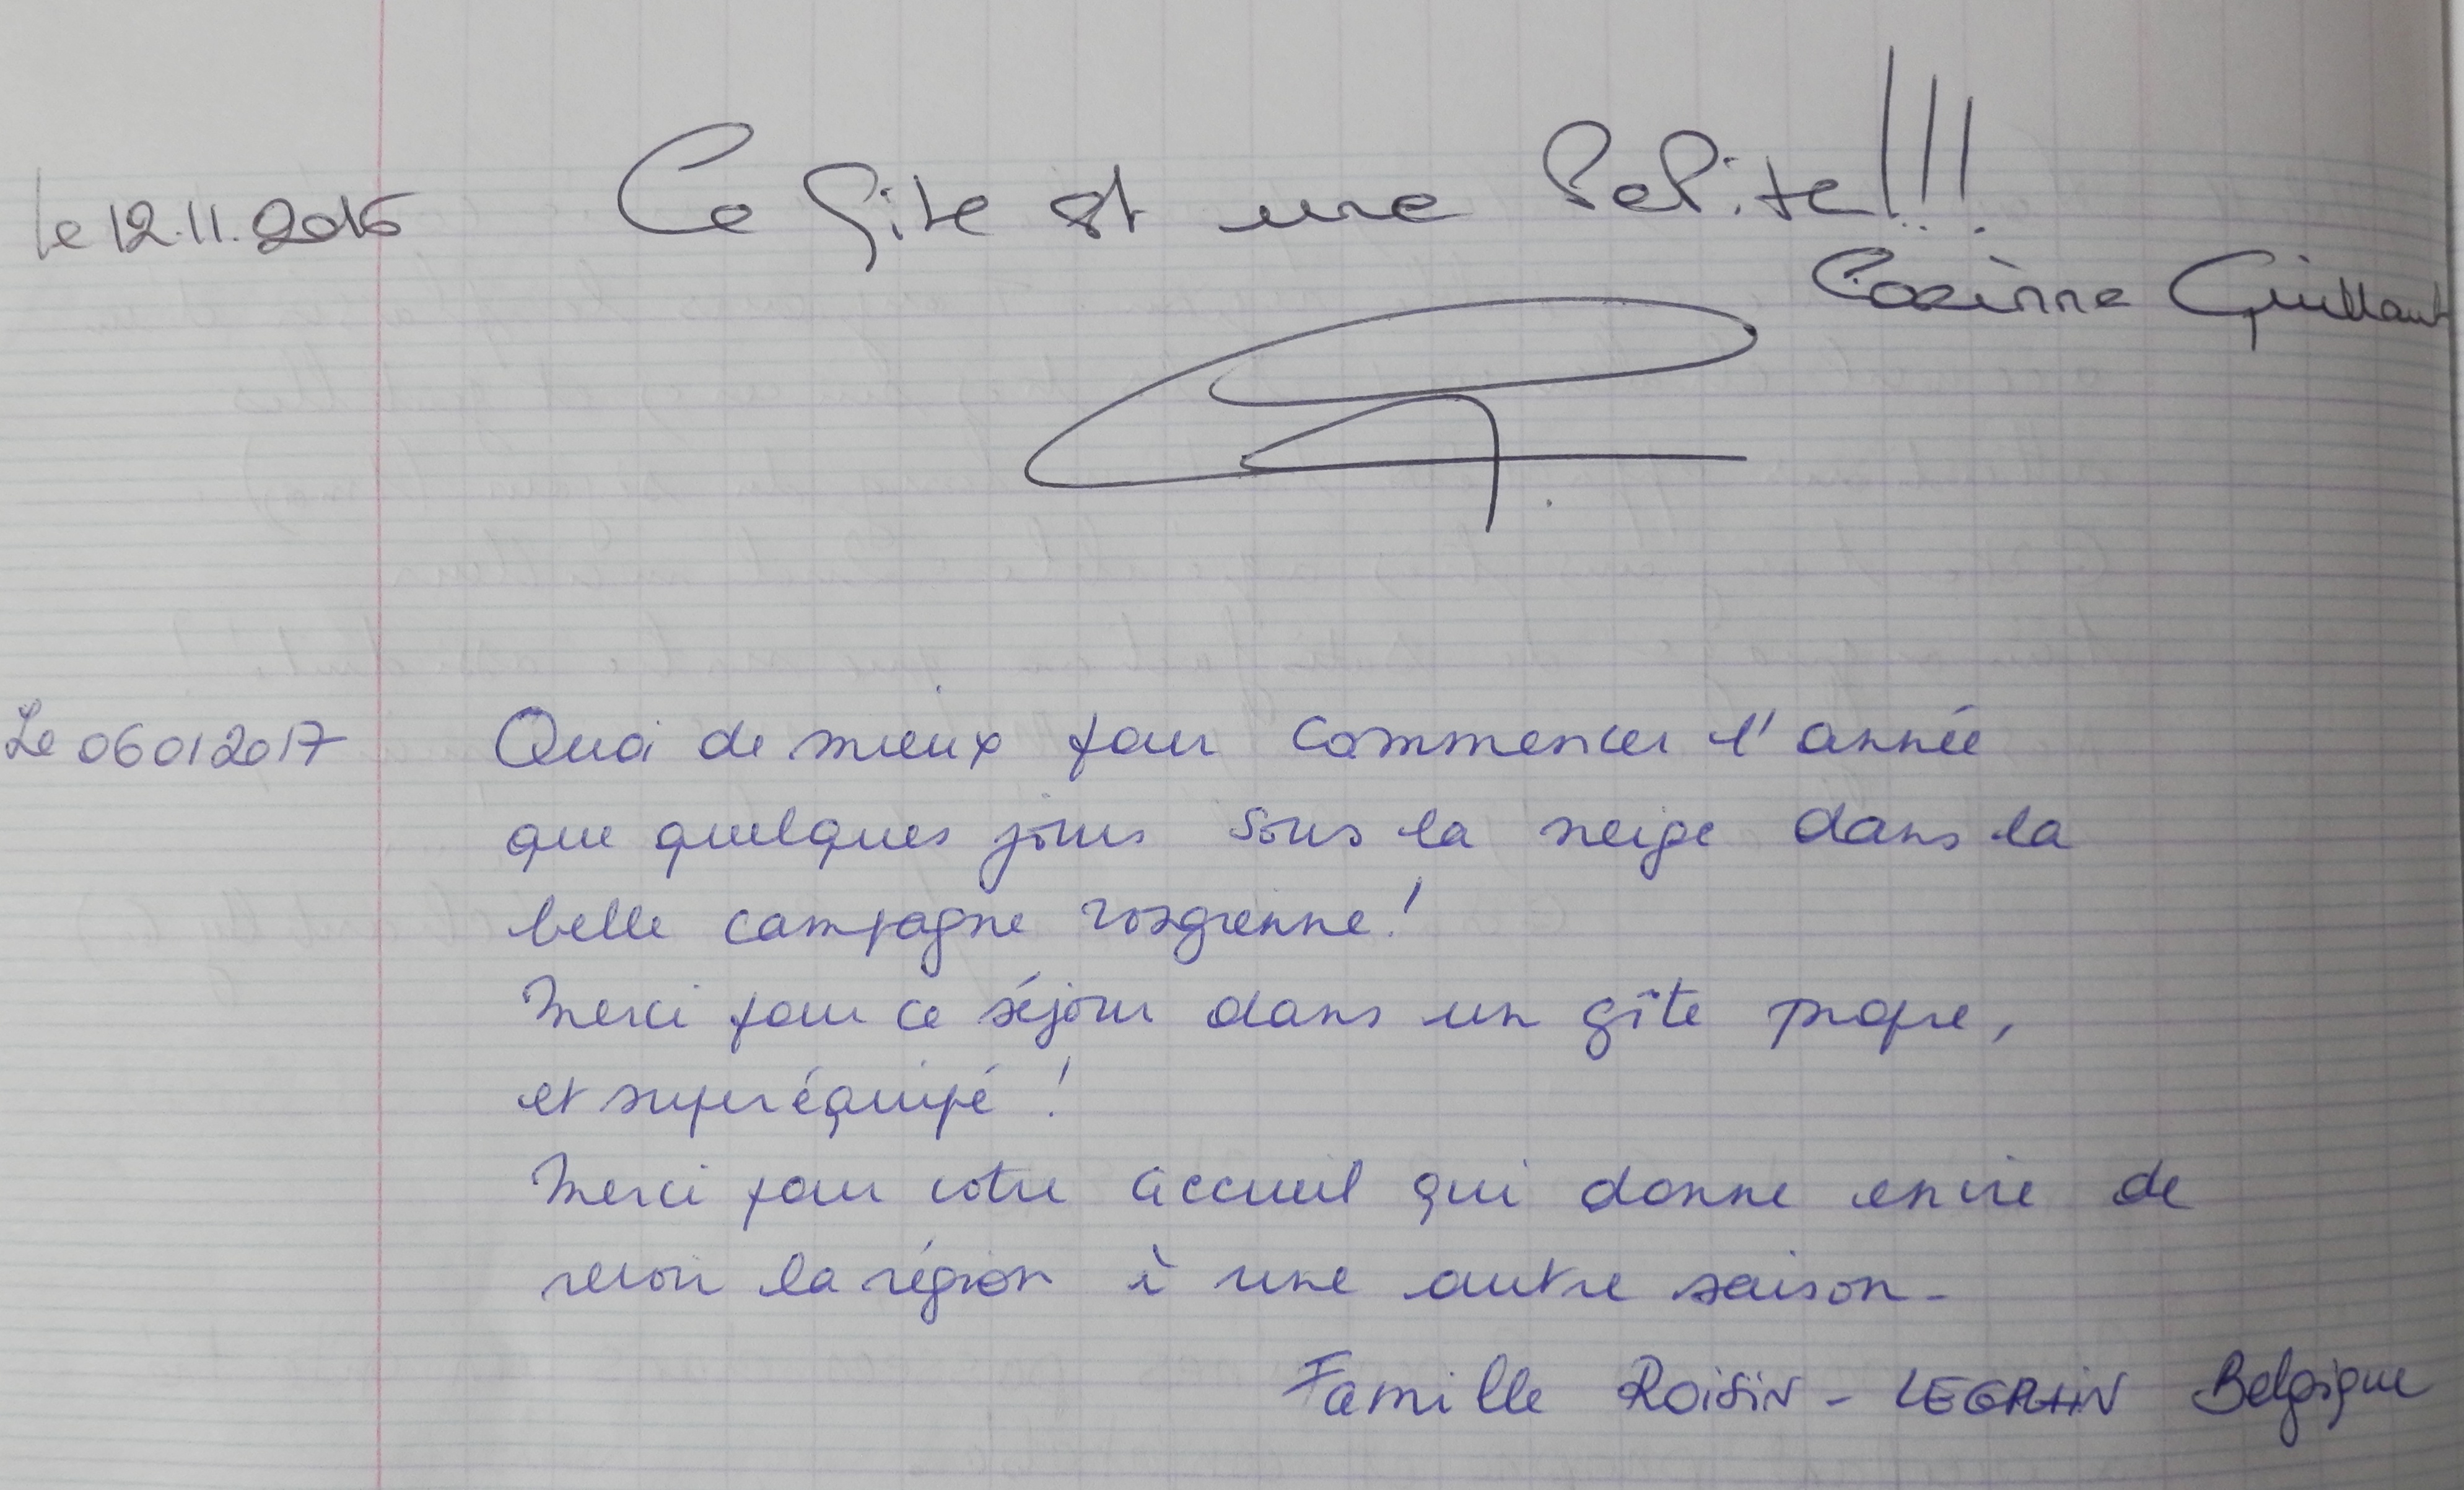 le 12.11.2016 Ce Gite est une Pepite!!!
Corinne Guillaut
Le 06012017 Quoi de mieux pour commencer l'année
que quelques jours sous la neige dans la
belle campagne vosgienne!
Merci pour ce séjour dans un gîte propre,
et super équipé !
Merci pour votre accueil qui donne envie de
revoir la région à une autre saison.
Famille Roisin - LEGRAIN Belgique